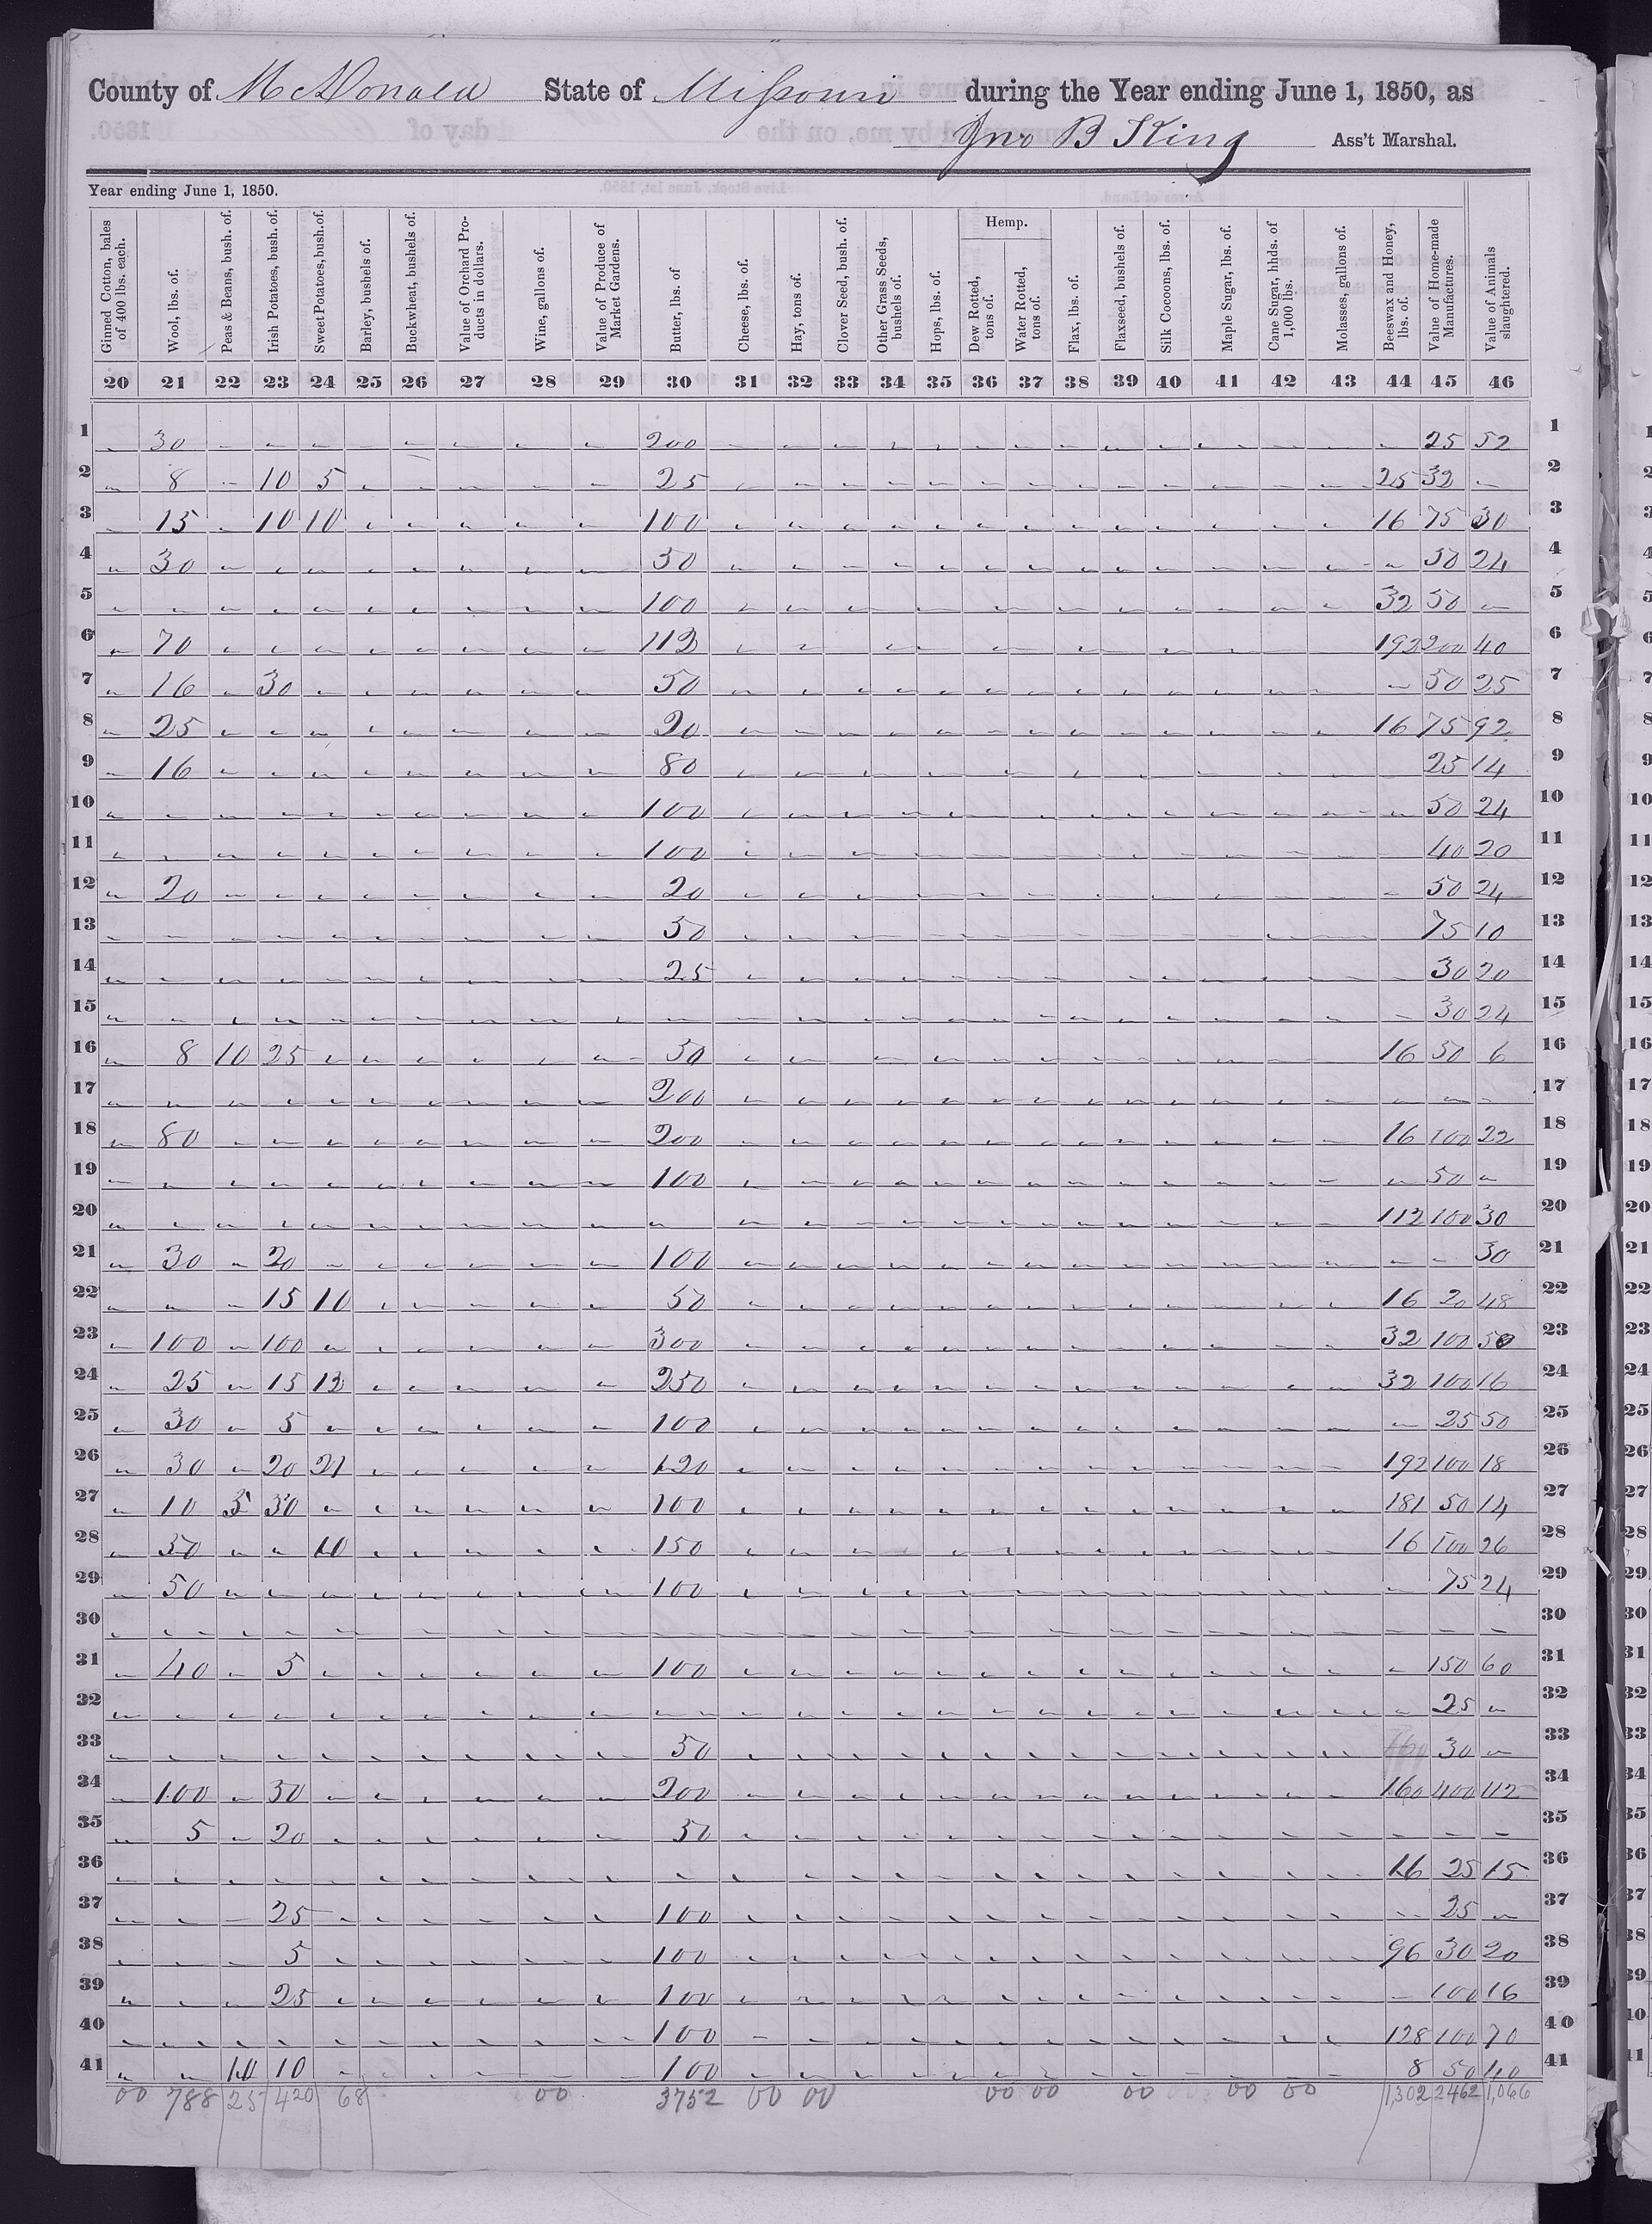 County of McDonald State of Missouri during the Year ending June 1, 1850, as
Jno B King Ass't Marshal.
Year ending June 1, 1850.
Ginned Cotton, bales of 400 lbs. each. Wool, lbs. of. Peas & Beans, bush. of. Irish Potatoes, bush. of. Sweet Potatoes, bush. of. Barley, bushels of. Buckwheat, bushels of. Value of Orchard Products in dollars. Wine, gallons of. Value of Produce of Market Gardens. Butter, lbs. of Cheese, lbs. of. Hay, tons of. Clover Seed, bush. of. Other Grass Seeds, bushels of. Hops, lbs. of. Hemp. Dew Rotted, tons of. Water Rotted, tons of. Flax, lbs. of. Flaxseed, bushels of. Silk Cocoons, lbs. of. Maple Sugar, lbs. of. Cane Sugar, hhds. of 1,000 lbs. Molasses, gallons of. Beeswax and Honey, lbs. of. Value of Home-made Manufactures. Value of Animals slaughtered.
20 21 22 23 24 25 26 27 28 29 30 31 32 33 34 35 36 37 38 39 40 41 42 43 44 45 46
1 30 200 25 52 1
2 8 10 5 25 25 32 2
3 15 10 10 100 16 75 30 3
4 30 50 50 24 4
5 100 32 50 5
6 70 112 192 200 40 6
7 16 30 50 50 25 7
8 25 20 16 75 92 8
9 16 80 25 14 9
10 100 50 24 10
11 100 40 20 11
12 20 20 50 24 12
13 50 75 10 13
14 25 30 20 14
15 30 24 15
16 8 10 25 50 16 50 6 16
17 200 17
18 80 200 16 100 22 18
19 100 50 19
20 112 100 30 20
21 30 20 100 30 21
22 15 10 50 16 20 48 22
23 100 100 300 32 100 50 23
24 25 15 12 250 32 100 16 24
25 30 5 100 25 50 25
26 30 20 21 120 192 100 18 26
27 10 5 30 100 181 50 14 27
28 50 10 150 16 100 26 28
29 50 100 75 24 29
30 30
31 40 5 100 150 60 31
32 25 32
33 50 160 30 33
34 100 50 200 160 400 112 34
35 5 20 50 35
36 16 25 15 36
37 25 100 25 37
38 5 100 96 30 20 38
39 25 100 100 16 39
40 100 128 100 70 40
41 10 10 100 8 50 40 41
00 788 25 420 68 00 3752 00 00 00 00 00 00 00 1,302 2462 1,066